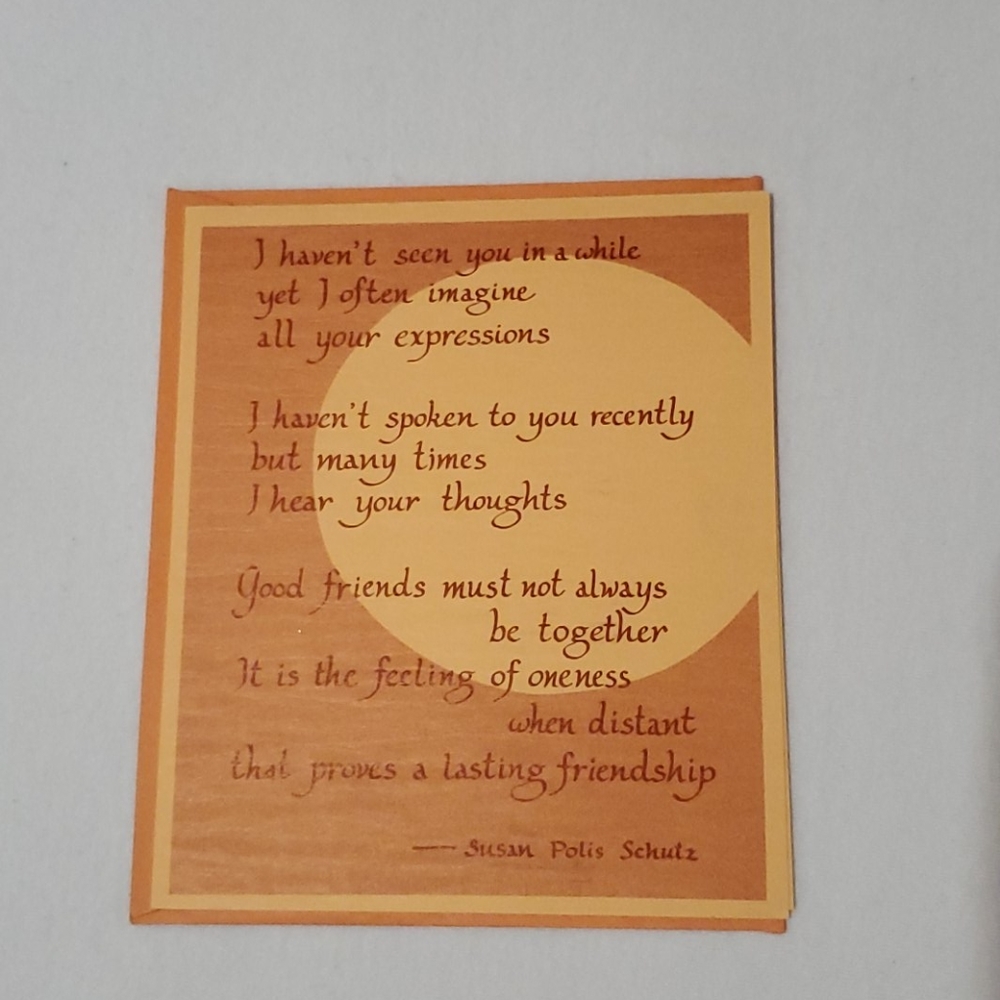 I haven't seen you in a while
yet I often imagine
all your expressions
I haven't spoken to you recently
but many times
I hear your thoughts
Good friends must not always
be together
It is the feeling of oneness
when distant
that proves a lasting friendship
— Susan Polis Schutz